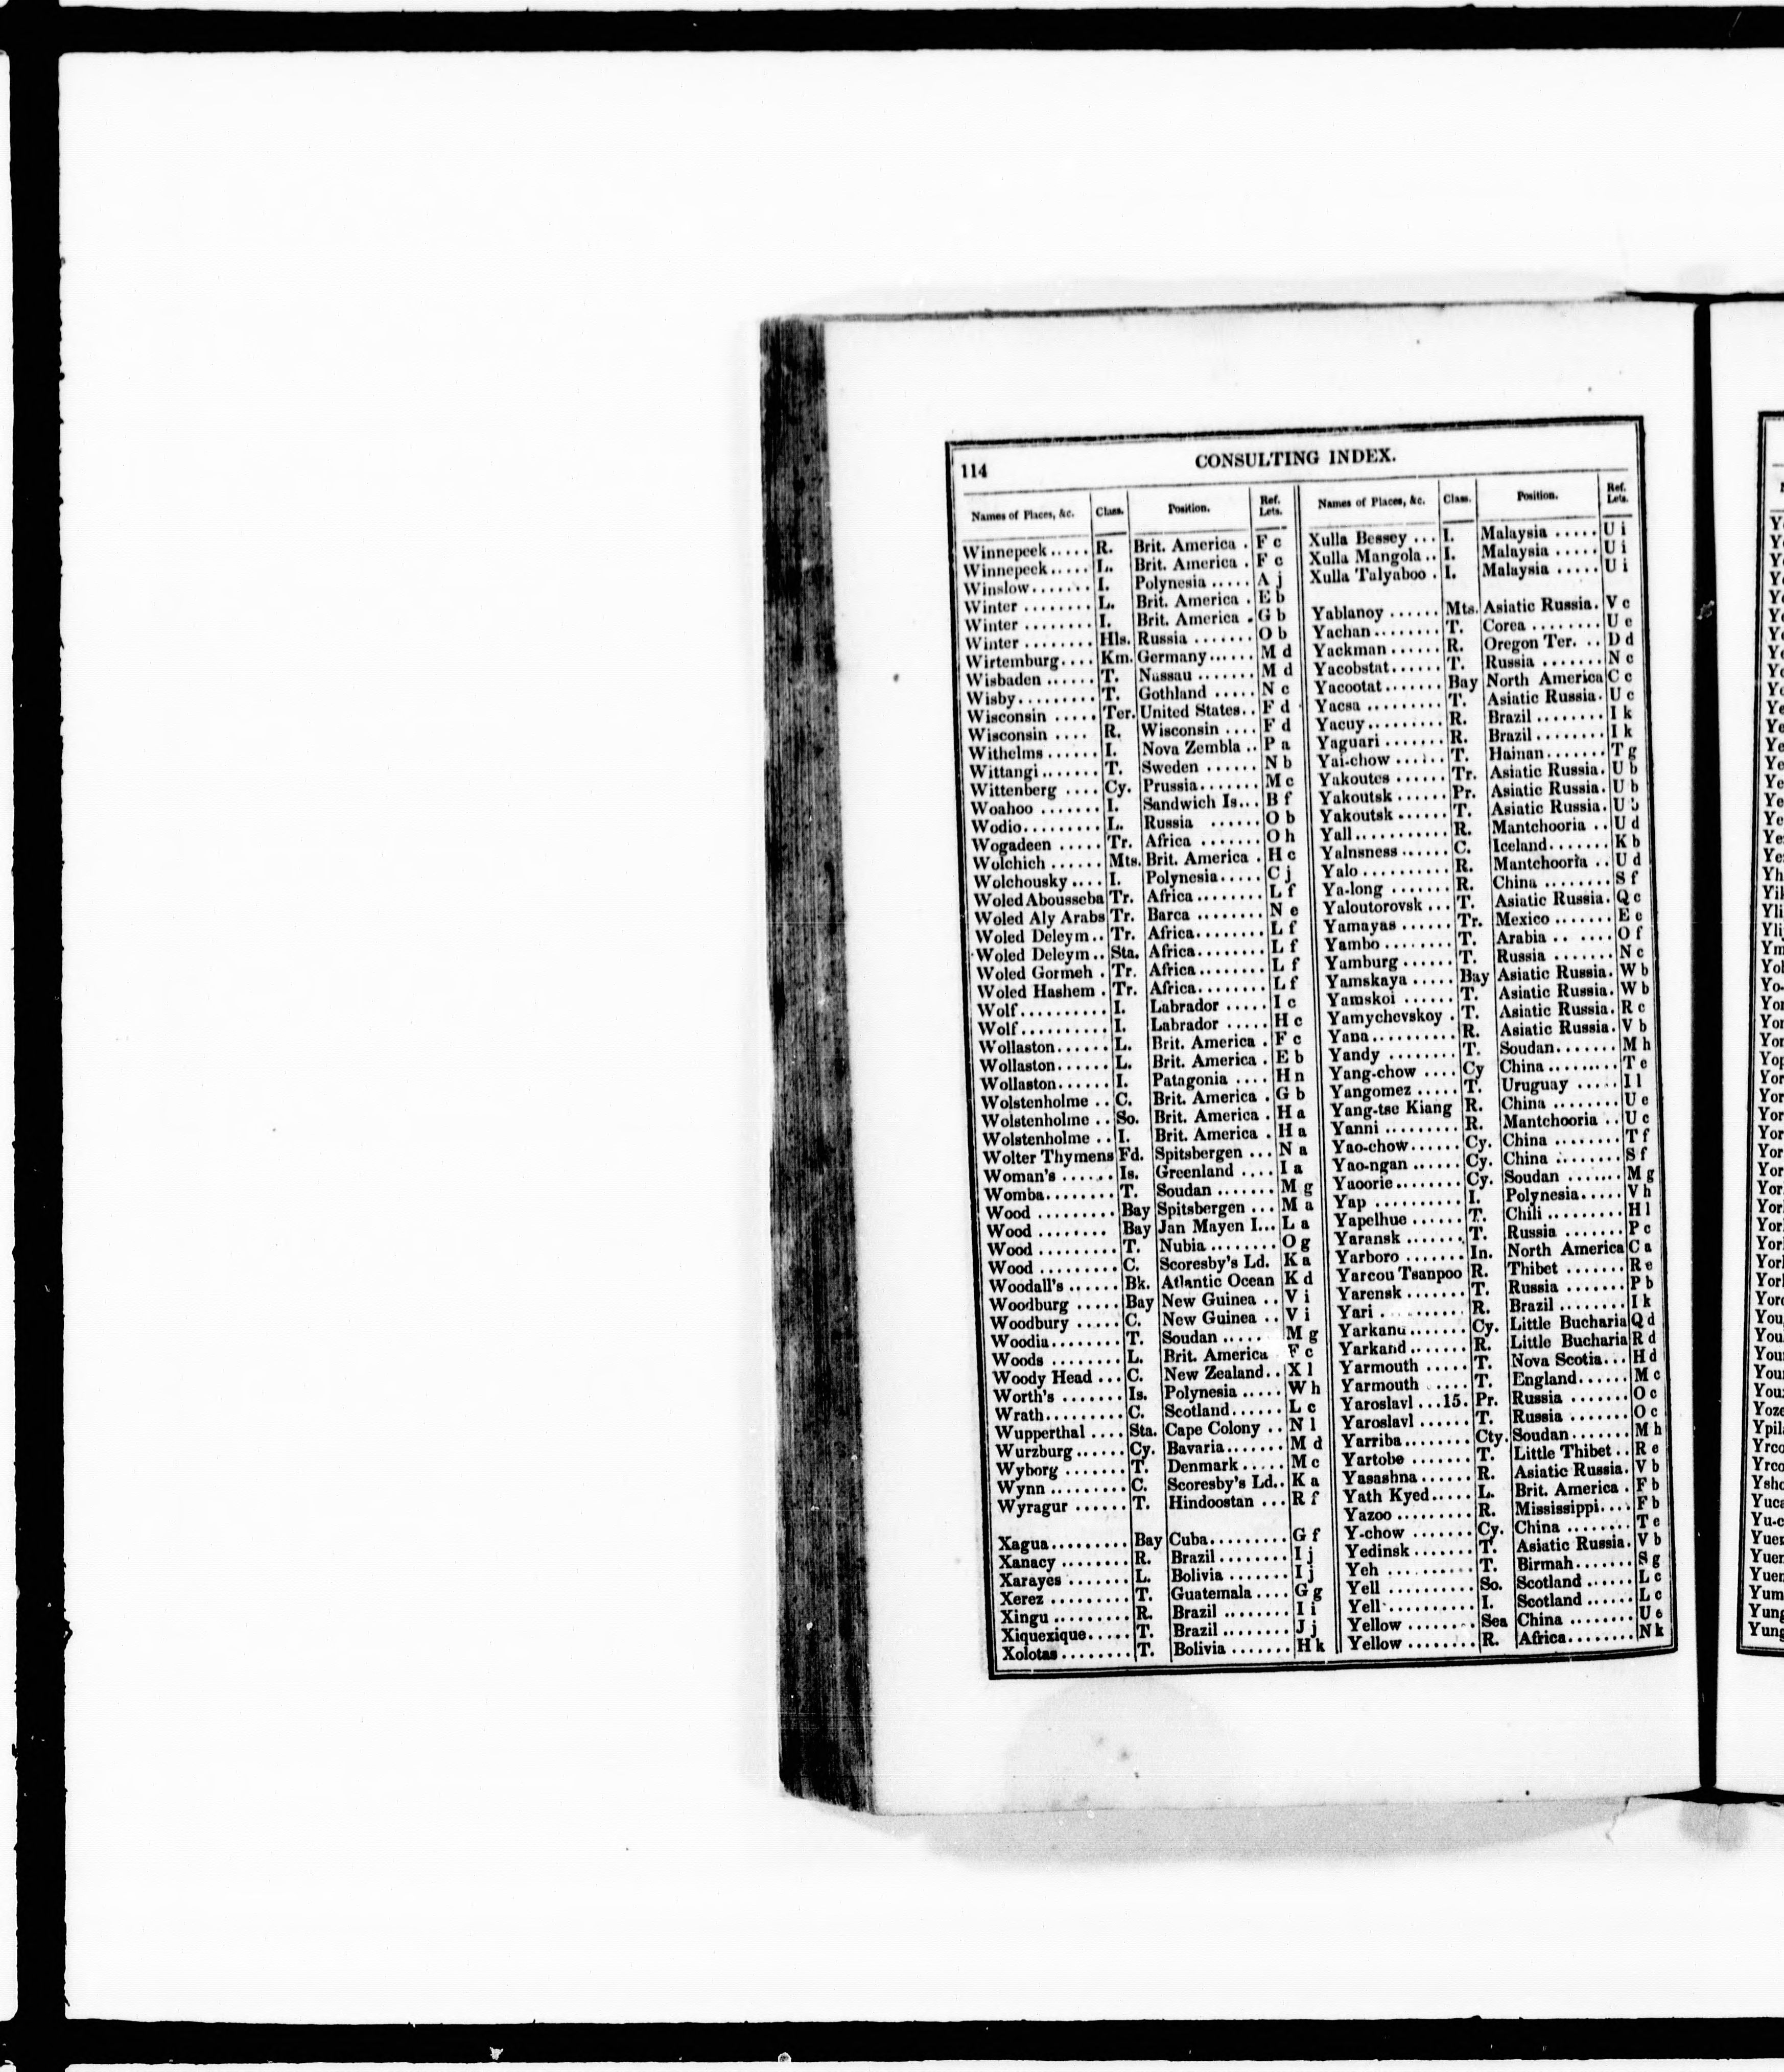 114
CONSULTING INDEX.
Names of Places, &c. Class. Position. Ref. Lets.
Winnepeek..... R. Brit. America . F c
Winnepeek..... L. Brit. America . F c
Winslow....... I. Polynesia ..... A j
Winter ........ L. Brit. America . E b
Winter ........ I. Brit. America . G b
Winter ........ Hls. Russia ....... O b
Wirtemburg.... Km. Germany...... M d
Wisbaden ...... T. Nassau ....... M d
Wisby.......... T. Gothland ..... N c
Wisconsin ..... Ter. United States.. F d
Wisconsin .... R. Wisconsin .... F d
Withelms ...... I. Nova Zembla .. P a
Wittangi....... T. Sweden ...... N b
Wittenberg .... Cy. Prussia....... M c
Woahoo ....... I. Sandwich Is... B f
Wodio......... L. Russia ...... O b
Wogadeen ..... Tr. Africa ....... O h
Wolchich ...... Mts. Brit. America . H c
Wolchousky .... I. Polynesia..... C j
Woled Abousseba Tr. Africa........ L f
Woled Aly Arabs Tr. Barca ........ N e
Woled Deleym.. Tr. Africa........ L f
Woled Deleym.. Sta. Africa........ L f
Woled Gormeh . Tr. Africa........ L f
Woled Hashem . Tr. Africa........ L f
Wolf.......... I. Labrador ..... I c
Wolf.......... I. Labrador ..... H c
Wollaston...... L. Brit. America . F c
Wollaston...... L. Brit. America . E b
Wollaston...... I. Patagonia .... H n
Wolstenholme .. C. Brit. America . G b
Wolstenholme .. So. Brit. America . H a
Wolstenholme .. I. Brit. America . H a
Wolter Thymens Fd. Spitsbergen ... N a
Woman's ...... Is. Greenland .... I a
Womba........ T. Soudan ....... M g
Wood ......... Bay Spitsbergen ... M a
Wood ........ Bay Jan Mayen I... L a
Wood ......... T. Nubia ........ O g
Wood ......... C. Scoresby's Ld. K a
Woodall's ...... Bk. Atlantic Ocean K d
Woodburg ..... Bay New Guinea .. V i
Woodbury ..... C. New Guinea .. V i
Woodia........ T. Soudan ..... M g
Woods ........ L. Brit. America F c
Woody Head ... C. New Zealand.. X l
Worth's ....... Is. Polynesia ..... W h
Wrath......... C. Scotland...... L c
Wupperthal .... Sta. Cape Colony .. N l
Wurzburg...... Cy. Bavaria....... M d
Wyborg ....... T. Denmark ..... M c
Wynn ......... C. Scoresby's Ld.. K a
Wyragur ...... T. Hindoostan ... R f
Xagua......... Bay Cuba......... G f
Xanacy ........ R. Brazil ........ I j
Xarayes ....... L. Bolivia ....... I j
Xerez ......... T. Guatemala .... G g
Xingu ......... R. Brazil ........ I i
Xiquexique..... T. Brazil ........ J j
Xolotas........ T. Bolivia ....... H k
Names of Places, &c. Class. Position. Ref. Lets.
Xulla Bessey ... I. Malaysia ..... U i
Xulla Mangola.. I. Malaysia ..... U i
Xulla Talyaboo . I. Malaysia ..... U i
Yablanoy ...... Mts. Asiatic Russia. V c
Yachan........ T. Corea ........ U e
Yackman ...... R. Oregon Ter. .. D d
Yacobstat...... T. Russia ....... N c
Yacootat....... Bay North America C c
Yacsa ......... T. Asiatic Russia. U c
Yacuy......... R. Brazil ........ I k
Yaguari ....... R. Brazil ........ I k
Yai-chow ...... T. Hainan....... T g
Yakoutes ...... Tr. Asiatic Russia. U b
Yakoutsk ...... Pr. Asiatic Russia. U b
Yakoutsk ...... T. Asiatic Russia. U b
Yall........... R. Mantchooria .. U d
Yalnsness ...... C. Iceland....... K b
Yalo .......... R. Mantchooria .. U d
Ya-long ....... R. China ........ S f
Yaloutorovsk ... T. Asiatic Russia. Q c
Yamayas ...... Tr. Mexico ....... E e
Yambo ........ T. Arabia .. ..... O f
Yamburg ...... T. Russia ....... N c
Yamskaya ..... Bay Asiatic Russia. W b
Yamskoi ...... T. Asiatic Russia. W b
Yamychevskoy . T. Asiatic Russia. R c
Yana.......... R. Asiatic Russia. V b
Yandy ........ T. Soudan....... M h
Yang-chow .... Cy China ......... T e
Yangomez ..... T. Uruguay ..... I l
Yang-tse Kiang R. China ........ U e
Yanni ......... R. Mantchooria .. U c
Yao-chow...... Cy. China ........ T f
Yao-ngan ...... Cy. China ........ S f
Yaoorie........ Cy. Soudan ....... M g
Yap .......... I. Polynesia..... V h
Yapelhue ...... T. Chili ......... H l
Yaransk ....... T. Russia ....... P c
Yarboro ....... In. North America C a
Yarcou Tsanpoo R. Thibet ....... R e
Yarensk ....... T. Russia ....... P b
Yari .......... R. Brazil ........ I k
Yarkand....... Cy. Little Bucharia Q d
Yarkand....... R. Little Bucharia R d
Yarmouth ..... T. Nova Scotia... H d
Yarmouth .... T. England...... M c
Yaroslavl ...15. Pr. Russia ....... O c
Yaroslavl ...... T. Russia ....... O c
Yarriba........ Cty. Soudan....... M h
Yartobe ....... T. Little Thibet .. R e
Yasashna ...... R. Asiatic Russia. V b
Yath Kyed..... L. Brit. America . F b
Yazoo ......... R. Mississippi.... F b
Y-chow ....... Cy. China ........ T e
Yedinsk ....... T. Asiatic Russia. V b
Yeh .......... T. Birmah....... S g
Yell .......... So. Scotland ...... L c
Yell .......... I. Scotland ...... L c
Yellow ........ Sea China ........ U e
Yellow ........ R. Africa........ N k